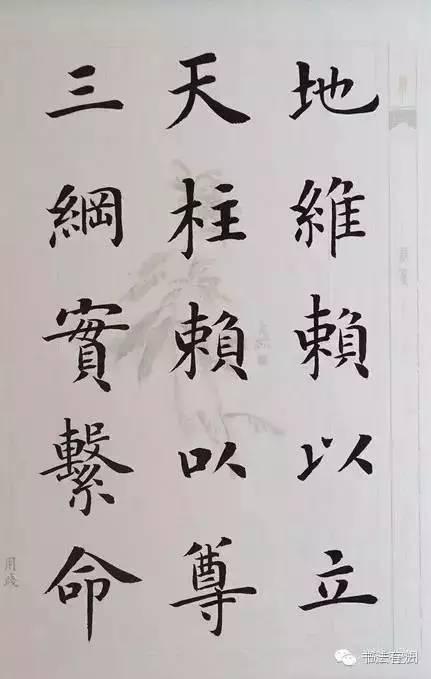 地維賴以立
天柱賴以尊
三綱實繫命
用箋
书法有润